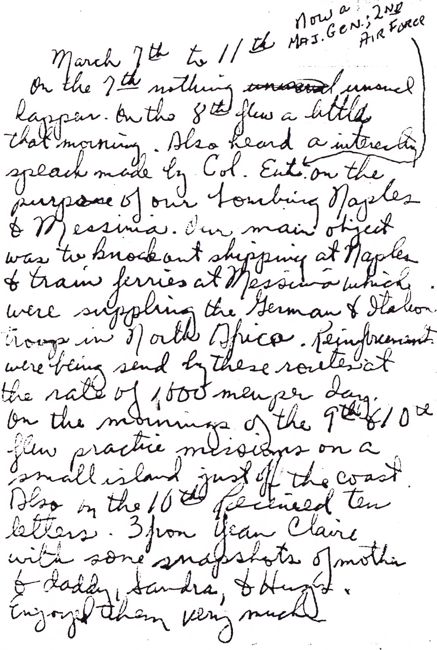 Now a
Maj. Gen.; 2nd
Air Force
March 7th to 11th
On the 7th nothing unusual
happen. On the 8th flew a little
that morning. Also heard a interesting
speach made by Col. Ent. on the
purpose of our bombing Naples
& Messinia. Our main object
was to knock out shipping at Naples
& train ferries at Messinia which
were suppling the German & Italian
troups in North Africa. Reinforcement
were being send by these routes at
the rate of 1,000 men per day.
On the mornings of the 9th & 10th
flew practice missions on a
small island just off the coast.
Also on the 10th received ten
letters. 3 from Jean Claire
with some snapshots of mother
& daddy, Sandra, & Hugs.
Enjoyed them very much